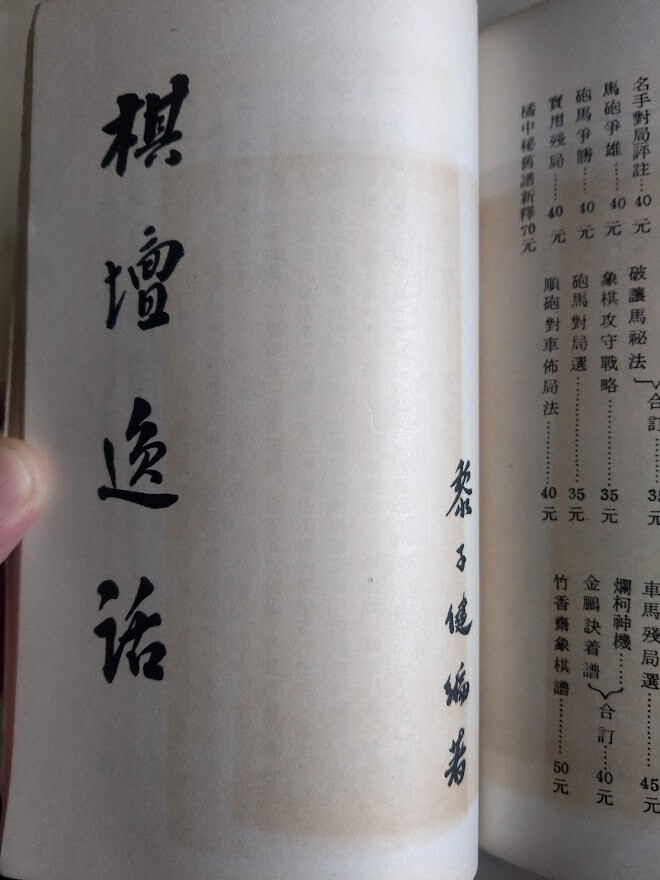 名手對局評註…40元
馬砲爭雄……40元
砲馬爭勝……40元
實用殘局……40元
橘中秘舊譜新釋70元
破讓馬祕法
合訂……35元
象棋攻守戰略…………35元
砲馬對局選…………35元
順砲對車佈局法…………40元
車馬殘局選…………45元
爛柯神機……
金鵬訣着譜
合訂……40元
竹香齋象棋譜…………50元
棋壇逸話
黎子健編著